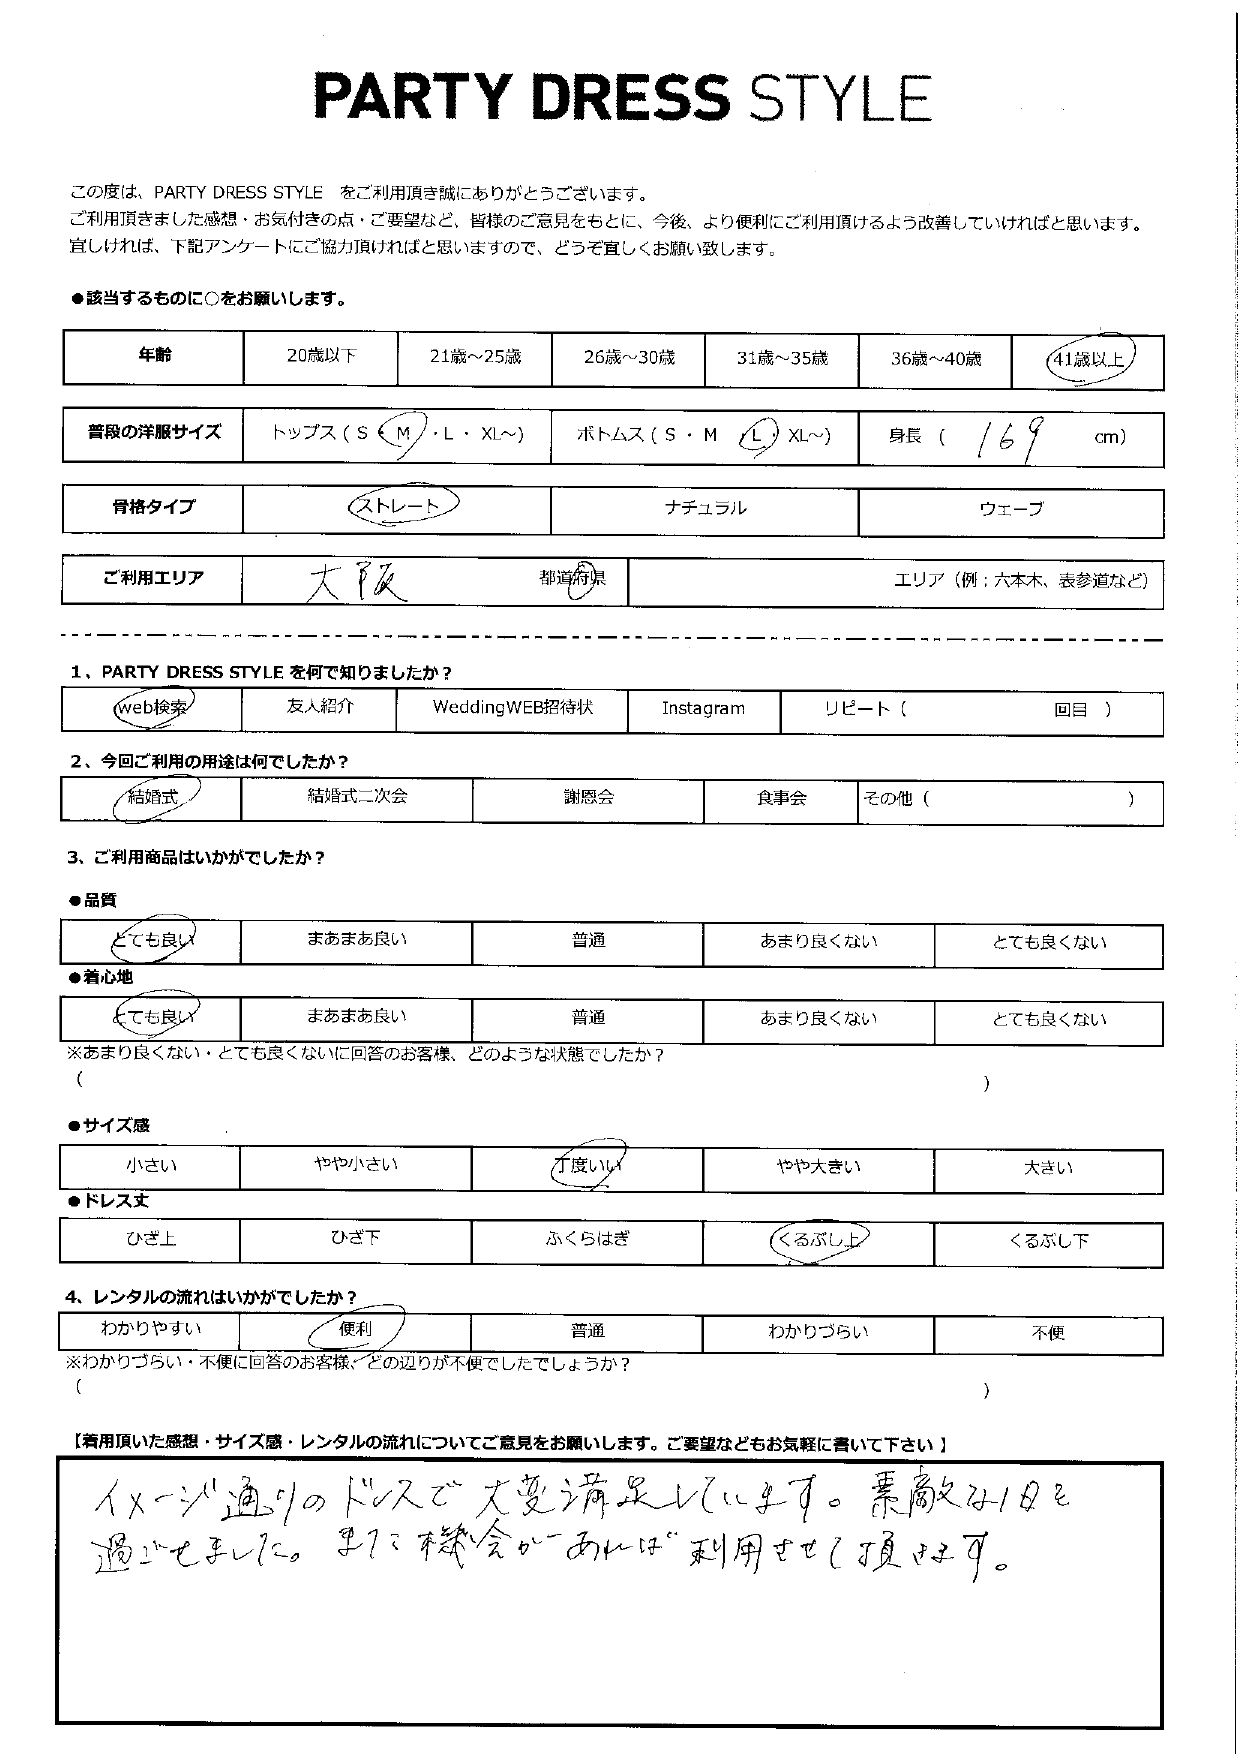 PARTY DRESS STYLE
この度は、PARTY DRESS STYLE をご利用頂き誠にありがとうございます。
ご利用頂きました感想・お気付きの点・ご要望など、皆様のご意見をもとに、今後、より便利にご利用頂けるよう改善していければと思います。
宜しければ、下記アンケートにご協力頂ければと思いますので、どうぞ宜しくお願い致します。
●該当するものに○をお願いします。
年齢 20歳以下 21歳～25歳 26歳～30歳 31歳～35歳 36歳～40歳 41歳以上
普段の洋服サイズ トップス（S・M・L・XL～） ボトムス（S・M・L・XL～） 身長（ 169 cm）
骨格タイプ ストレート ナチュラル ウェーブ
ご利用エリア 大阪 都道府県 エリア（例；六本木、表参道など）
1、PARTY DRESS STYLE を何で知りましたか？
web検索 友人紹介 WeddingWEB招待状 Instagram リピート（ 回目 ）
2、今回ご利用の用途は何でしたか？
結婚式 結婚式二次会 謝恩会 食事会 その他（ ）
3、ご利用商品はいかがでしたか？
●品質
とても良い まあまあ良い 普通 あまり良くない とても良くない
●着心地
とても良い まあまあ良い 普通 あまり良くない とても良くない
※あまり良くない・とても良くないに回答のお客様、どのような状態でしたか？
（ ）
●サイズ感
小さい やや小さい 丁度いい やや大きい 大きい
●ドレス丈
ひざ上 ひざ下 ふくらはぎ くるぶし上 くるぶし下
4、レンタルの流れはいかがでしたか？
わかりやすい 便利 普通 わかりづらい 不便
※わかりづらい・不便に回答のお客様、どの辺りが不便でしたでしょうか？
（ ）
【着用頂いた感想・サイズ感・レンタルの流れについてご意見をお願いします。ご要望などもお気軽に書いて下さい】
イメージ通りのドレスで大変満足しています。素敵な1日を
過ごせました。また機会があれば利用させて頂きます。